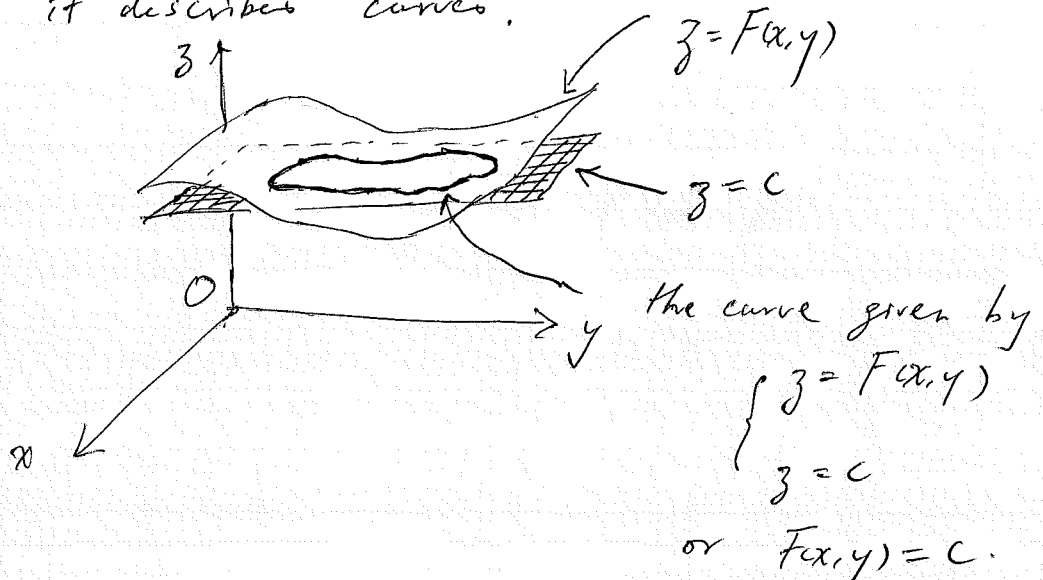 it describes curves.
z
z = F(x,y)
z = c
O
y
the curve given by
z = F(x,y)
z = c
x
or F(x,y) = c.